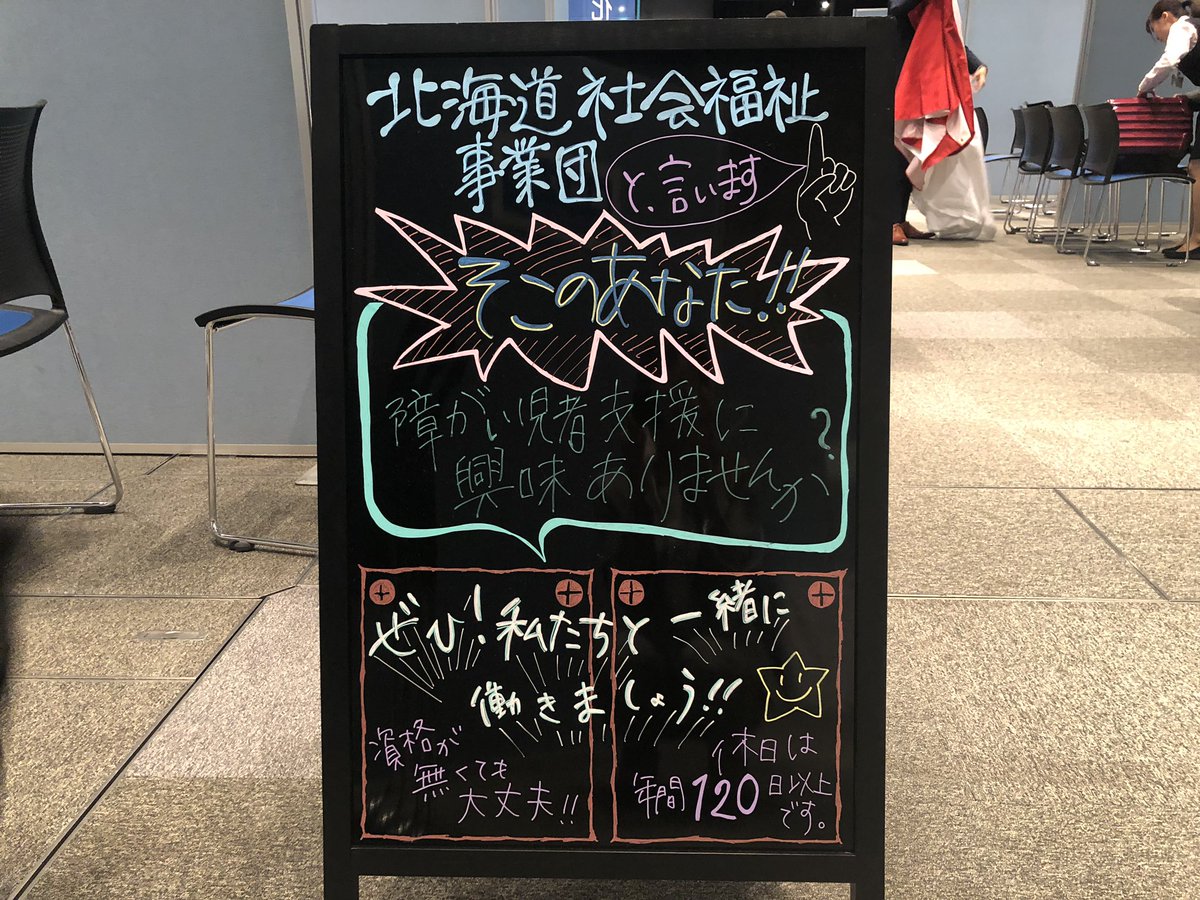 北海道社会福祉
事業団と、言います
そこのあなた!!
障がい児者支援に
興味ありませんか?
ぜひ!私たちと一緒に
働きましょう!!
資格が
無くても
大丈夫!!
休日は
年間120日以上
です。